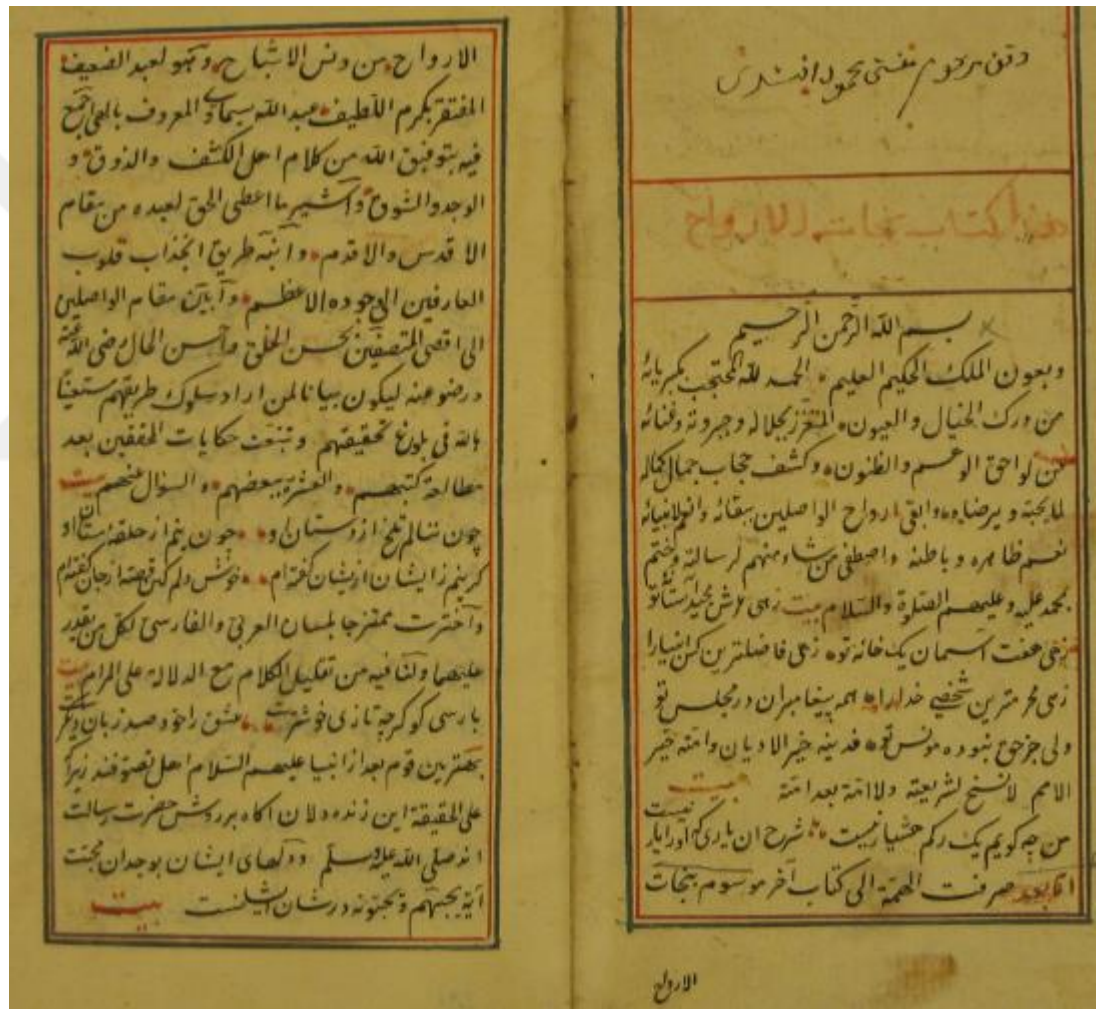 وقف مرحوم مفتى محمود افندى
هذا كتاب نجات الارواح
بسم الله الرحمن الرحيم
وبعون الملك الحكيم العليم الحمد لله المحتجب بكبريائه
من درك الخيال والعيون المتعزز بجلاله وجبروته وغنائه
عن لواحق الوهم والظنون وكشف حجاب جمال كماله
لما يحبه ويرضاه وابقى ارواح الواصلين ببقائه وانعم لانبيائه
نعم ظاهره وباطنه واصطفى من شاء منهم لرسالته وختم
بمحمد عليه وعليهم الصلوة والسلام بيت زهى عرش مجيد
زهى هفت اسمان يك خانه تو زهى فاضلترين كس انبيارا
زهى محرمترين شخصى خدارا همه پيغامبران در مجلس تو
ولى جز حق نبوده مونس تو فدينه خير الاديان وامته خير
الامم لا نسخ لشريعته ولا امة بعد امته بيت
من چه كويم يك ركم هشيار نيست شرح ان يارى كه اورا يار نيست
اما بعد صرفت الهمة الى كتاب آخر موسوم بنجات
الارواح
الارواح من دنس الاشباح وجهو لعبد الضعيف
المفتقر بكرم اللطيف عبد الله سماوى المعروف بالهى اجمع
فيه بتوفيق الله من كلام اهل الكشف والذوق و
الوجد والشوق وآشير ما اعطى الحق لعبده من مقام
الاقدس والاقدم وآنبه طريق انجذاب قلوب
العارفين الى وجوده الاعظم وآبين مقام الواصلين
الى اقصى المتصفين بحسن الخلق واحسن الحال رضى الله عنهم
ورضو عنه ليكون بيانا لمن اراد سلوك طريقهم مستعينا
بالله فى بلوغ تحقيقهم وتتبعت حكايات المحققين بعد
مطالعة كتبهم والعشرة ببعضهم والسؤال عنهم بيت
چون ننالم تلخ از دستان او چون نيم از حلقه مستان او
كر نيم زايشان ازيشان كفته ام خوش دلم كين قصه از جان كفته ام
وآخترت ممتزجا بلسان العربى والفارسى لكل من يقدر
عليهما ولنا فيه من تقليل الكلام مع الدلالة على المرام بيت
پارسى كو كرچه تازى خوشترست عشق راخود صد زبان ديكرست
بهترين قوم بعد از انبيا عليهم السلام اهل تصوفند زيرا
على الحقيقة اين زنده دلان اكاه بر روش حضرت رسالت
اند صلى الله عليه وسلم ودلهاى ايشان بوجدان محبت
آية يحبهم ويحبونه در شان ايشانست بيت